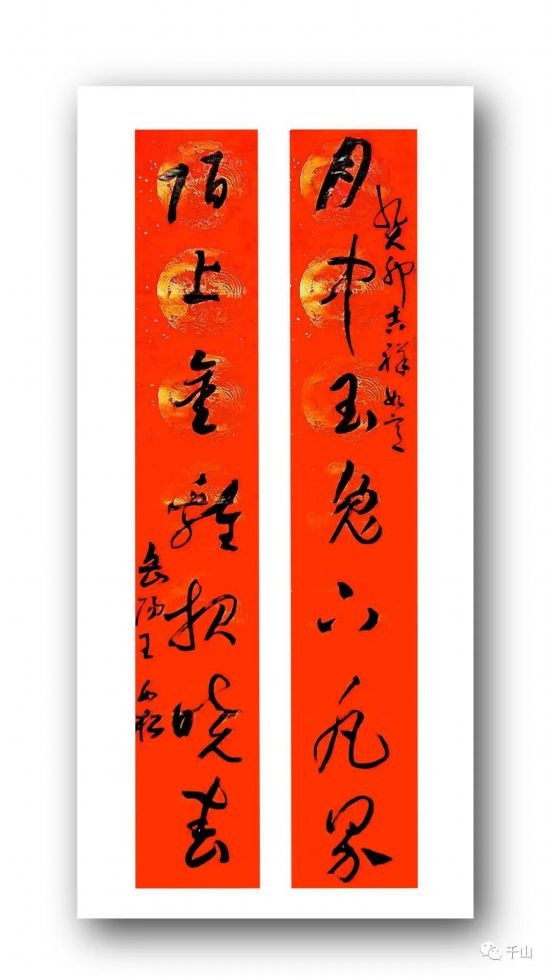 癸卯吉祥如意
月中玉兔下凡界
陌上金鸡报晓春
岳阳王
千山